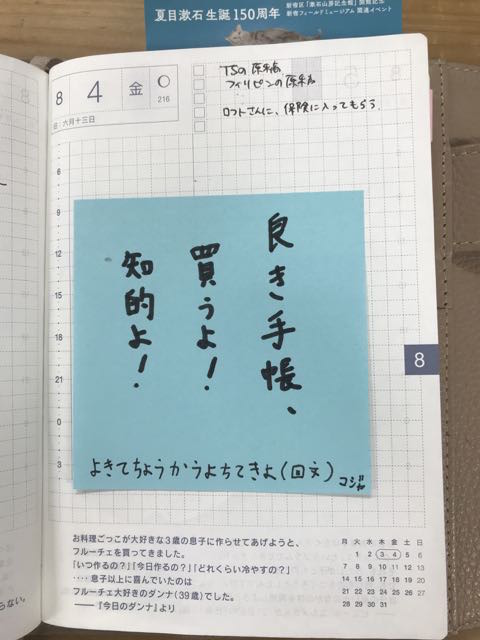 夏目漱石 生誕150周年
新宿区「漱石山房記念館」開館記念
新宿フィールドミュージアム 関連イベント
8 4 金 216
旧：六月十三日
TSの原稿
フィリピンの原稿
ロフトさんに、保険に入ってもらう。
6
9
12
15
18
21
0
3
良き手帳、
買うよ！
知的よ！
よきてちょうかうよちてきよ(回文)
コジャ
8
お料理ごっこが大好きな3歳の息子に作らせてあげようと、
フルーチェを買ってきました。
「いつ作るの？」「今日作るの？」「どれくらい冷やすの？」
‥‥息子以上に喜んでいたのは
フルーチェ大好きのダンナ(39歳)でした。
──『今日のダンナ』より
月 火 水 木 金 土 日
1 2 3 4 5 6
7 8 9 10 11 12 13
14 15 16 17 18 19 20
21 22 23 24 25 26 27
28 29 30 31
らない。